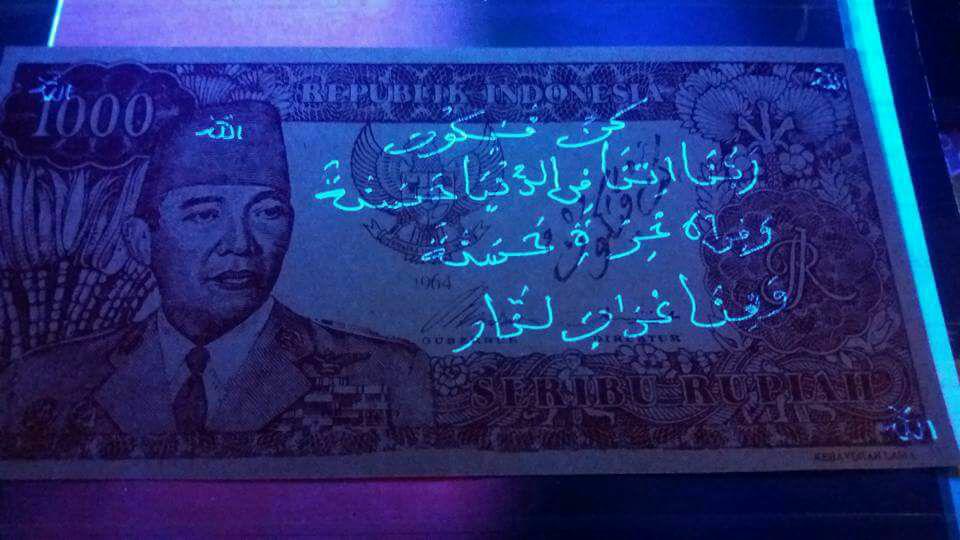 REPUBLIK INDONESIA
الله
1000
الله
الله
كن فيكون
ربنا اتنا في الدنيا حسنة
وفي الاخرة حسنة
وقنا عذاب النار
1964
GUBERNUR
DIREKTUR
SERIBU RUPIAH
الله
KEBAYORAN LAMA